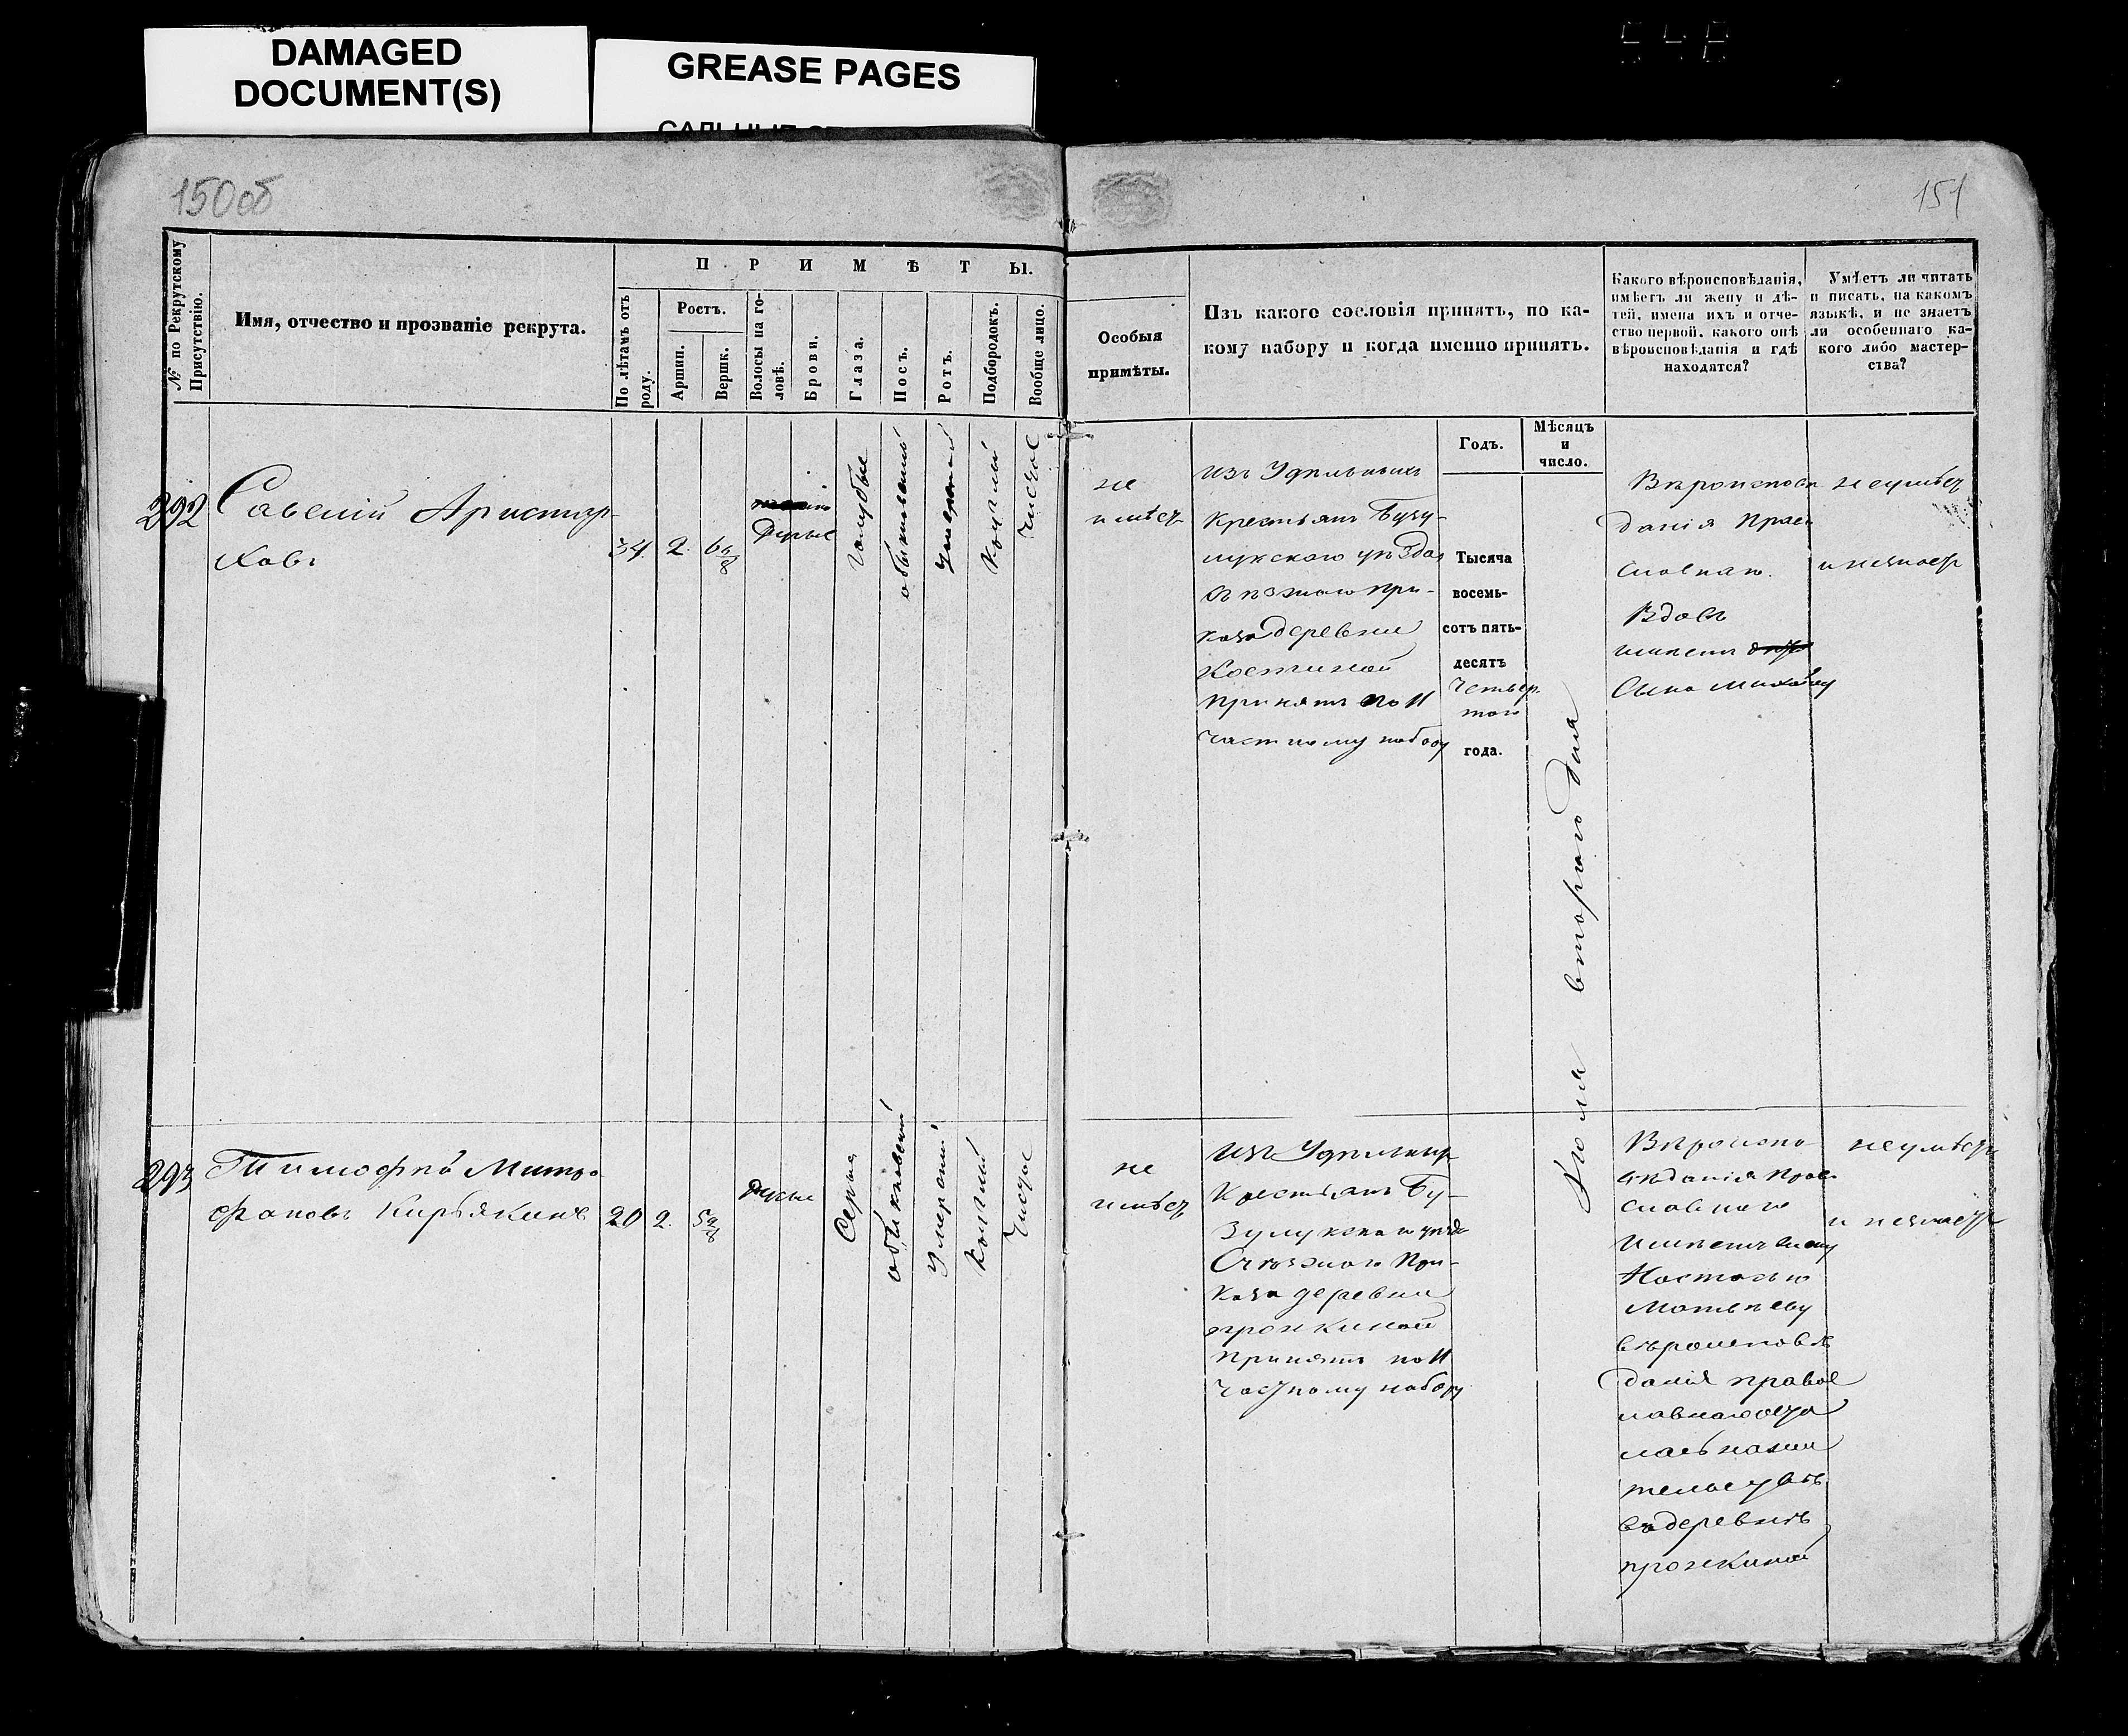 DAMAGED
DOCUMENT(S)
GREASE PAGES
150об
151
№ по Рекрутскому
Присутствію.
Имя, отчество и прозваніе рекрута.
ПРИМѢТЫ.
По лѣтамъ отъ
роду.
Ростъ.
Аршин.
Вершк.
Волосы на го-
ловѣ.
Брови.
Глаза.
Носъ.
Ротъ.
Подбородокъ.
Вообще лицо.
Особыя
примѣты.
Изъ какого сословія принятъ, по ка-
кому набору и когда именно принятъ.
Какого вѣроисповѣданія,
имѣетъ ли жену и дѣ-
тей, имена ихъ и отче-
ство первой, какого онѣ
вѣроисповѣданія и гдѣ
находятся?
Умѣетъ ли читать
и писать, на какомъ
языкѣ, и не знаетъ
ли особеннаго ка-
кого либо мастер-
ства?
Годъ.
Мѣсяцъ
и
число.
292
Савелій Аристар-
ховъ
34. 2. 6 6/8
Русые
голубые
обыкновенный
умеренный
круглый
чистое
не
имѣетъ
изъ Удѣльныхъ
крестьянъ Бузу-
лукского уѣзда
приказа деревни
Костиной
принятъ по 11
частному набору
Тысяча
восемь-
сотъ пять-
десятъ
Четвер
таго
года.
Іюля втораго дня
Вѣроиспов
данія Прав
славнаго.
Вдовъ
имѣетъ
Сына
неумѣетъ
и незнаетъ
293
Тимофѣй Митро
фановъ Кирьякинъ
20 2. 5 2/8
Русые
Серыя
обыкновенный
умеренный
круглый
Чистое
не
имѣетъ
изъ Удѣльныхъ
Крестьянъ Бу-
зулукскаго уѣзда
При-
каза деревни
пронкиной
принятъ по 11
частному набору
Вѣроиспо
вѣданія Прав
славнаго
имѣетъ жену
Настасью
Матвѣеву
вѣроисповѣ
данія правос
лавнаго оста
лась на жи
тельствѣ
въ деревнѣ
пронкиной
неумѣетъ
и незнаетъ